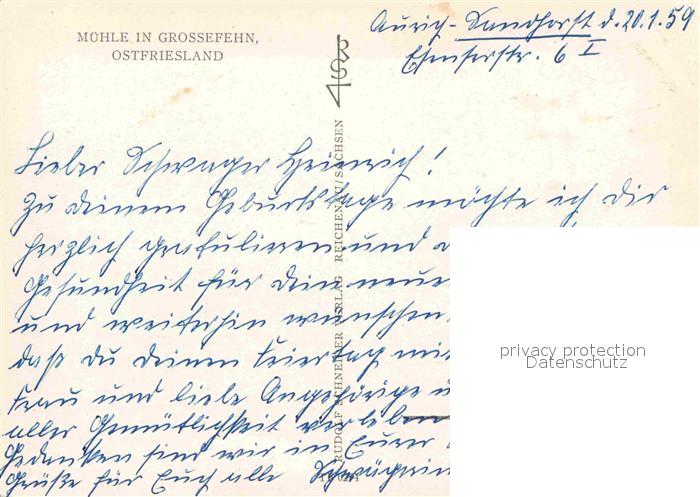 MÜHLE IN GROSSEFEHN,
OSTFRIESLAND
Aurich-Sandhorst d. 20.1.59
Esenserstr. 6 I
Lieber Schwager Heinrich!
Zu deinem Geburtstage möchte ich dir
herzlich gratulieren und
Gesundheit für dein neue
und weiterhin wünschen.
daß du deinen Feiertag mit
Frau und liebe Angehörige
aller Gemütlichkeit verleben
Gedanken sind wir in Eurer
Grüße für Euch alle Schwägerin
RUDOLF SCHNEIDER VERLAG REICHENAU/SACHSEN
privacy protection
Datenschutz